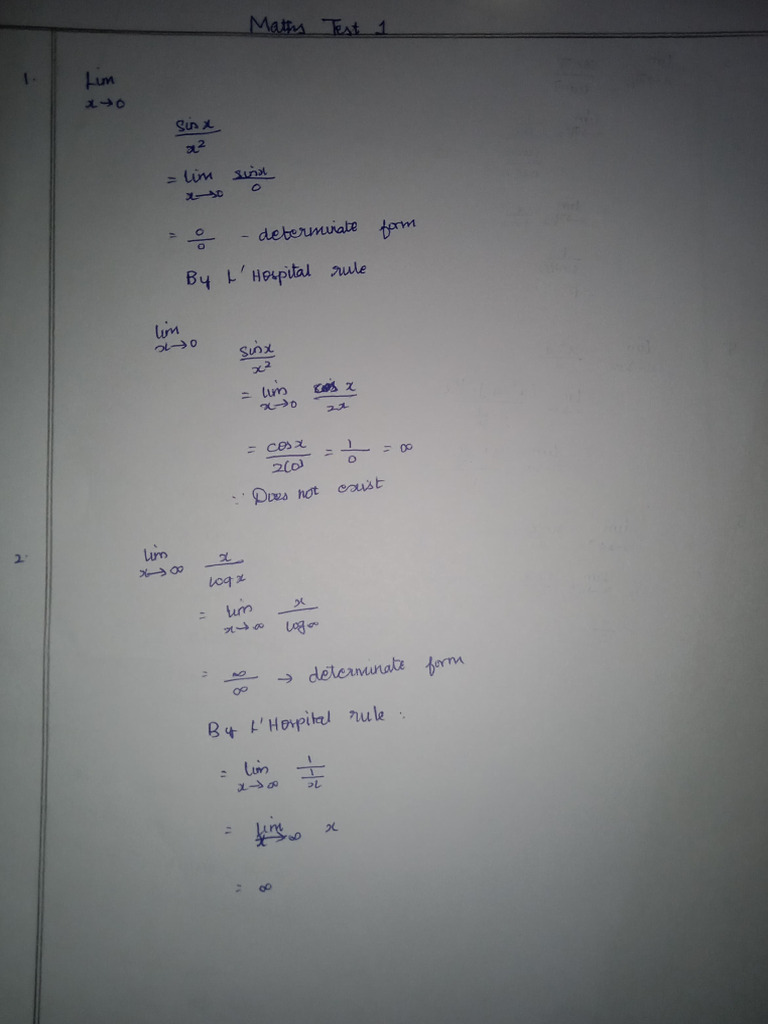 Maths Test 1
1. Lim
x→0
sin x
x²
= lim sinx
x→0 0
= 0/0 - determinate form
By L'Hospital rule
lim
x→0
sinx
x²
= lim cos x
x→0 2x
= cosx/2(0) = 1/0 = ∞
∵ Does not exist
2. lim x
x→∞ log x
= lim x
x→∞ log∞
= ∞/∞ → determinate form
By L'Hospital rule :
= lim 1
x→∞ 1/x
= lim x
x→∞
= ∞